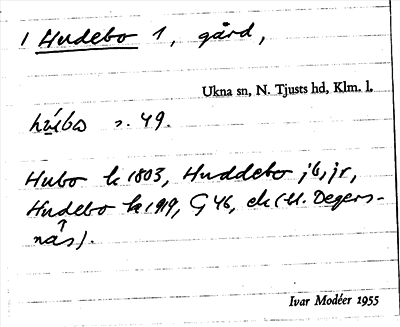 1 Hudebo 1, gård,
Ukna sn, N. Tjusts hd, Klm. l.
s. 49.
Hubo k 1803, Huddebo ib, jr,
Hudebo ha 1919, G 46, ek (U. Degers-
näs).
Ivar Modéer 1955